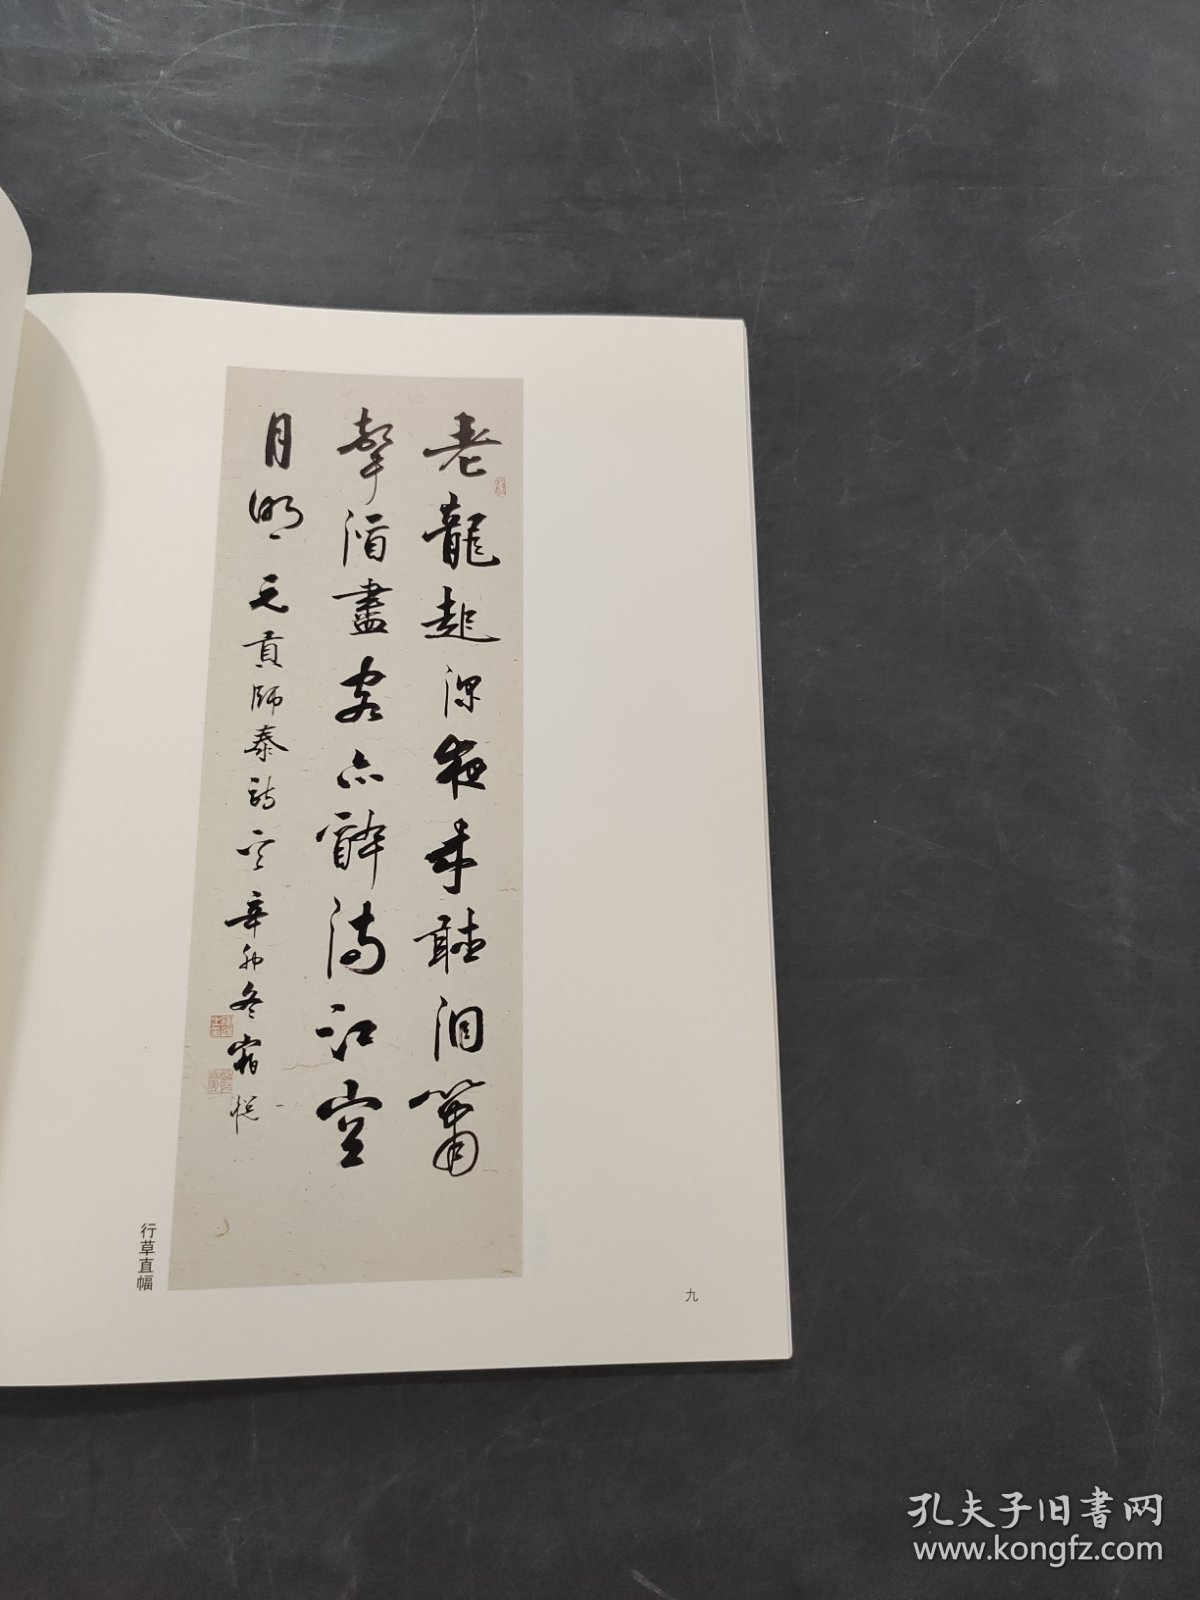 老龍起深夜来聽洞簫
聲酒盡客亦醉滿江空
月明 元貢師泰詩 辛卯冬
行草直幅
九
孔夫子旧書网
www.kongfz.com